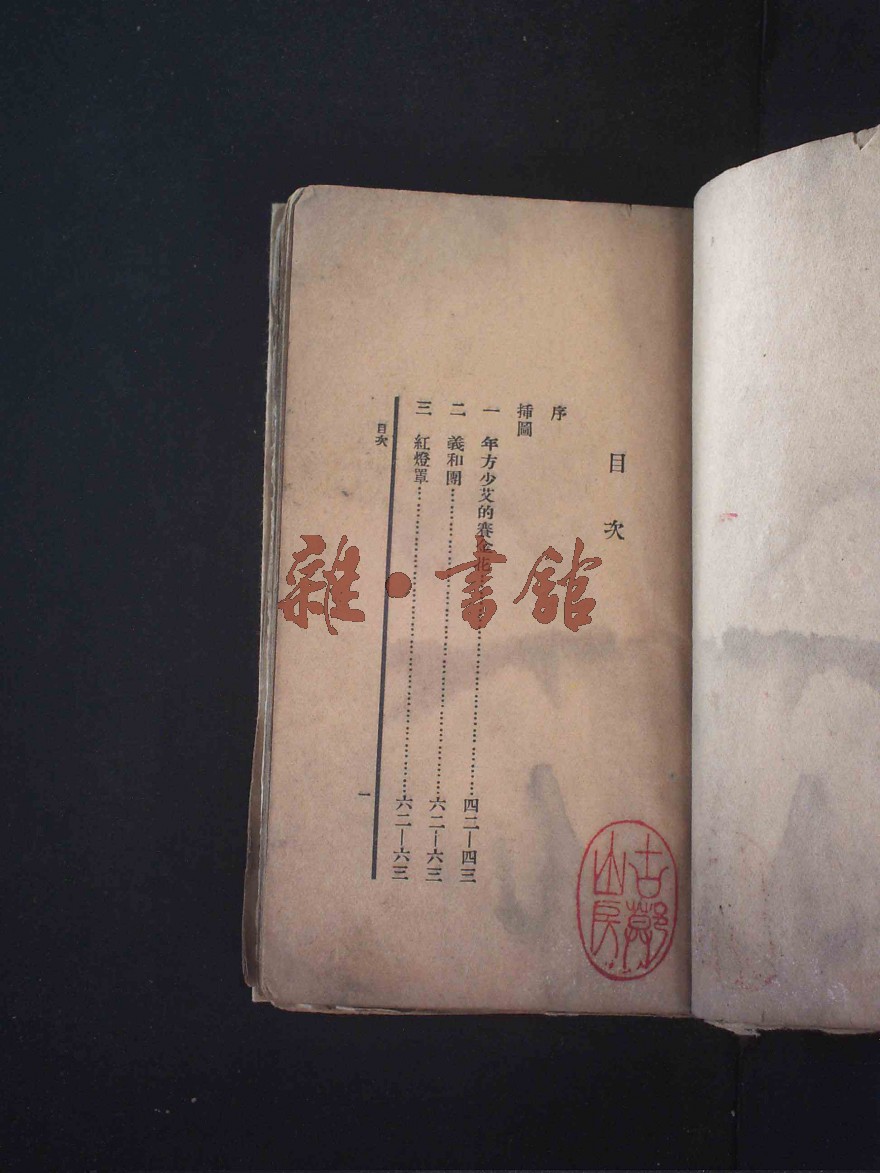 目次
序
插圖
一 年方少艾的賽金花……四二—四三
二 義和團……六二—六三
三 紅燈罩……六二—六三
目次
一
雜·書館
古鄮山房